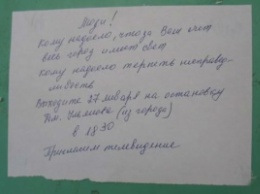 Люди!
Кому надоело, что за Ваш счёт
весь город имеет свет
кому надоело терпеть несправед-
ливость
Выходите 27 января на остановку
(из города)
в 18 30
Приглашаем телевидение